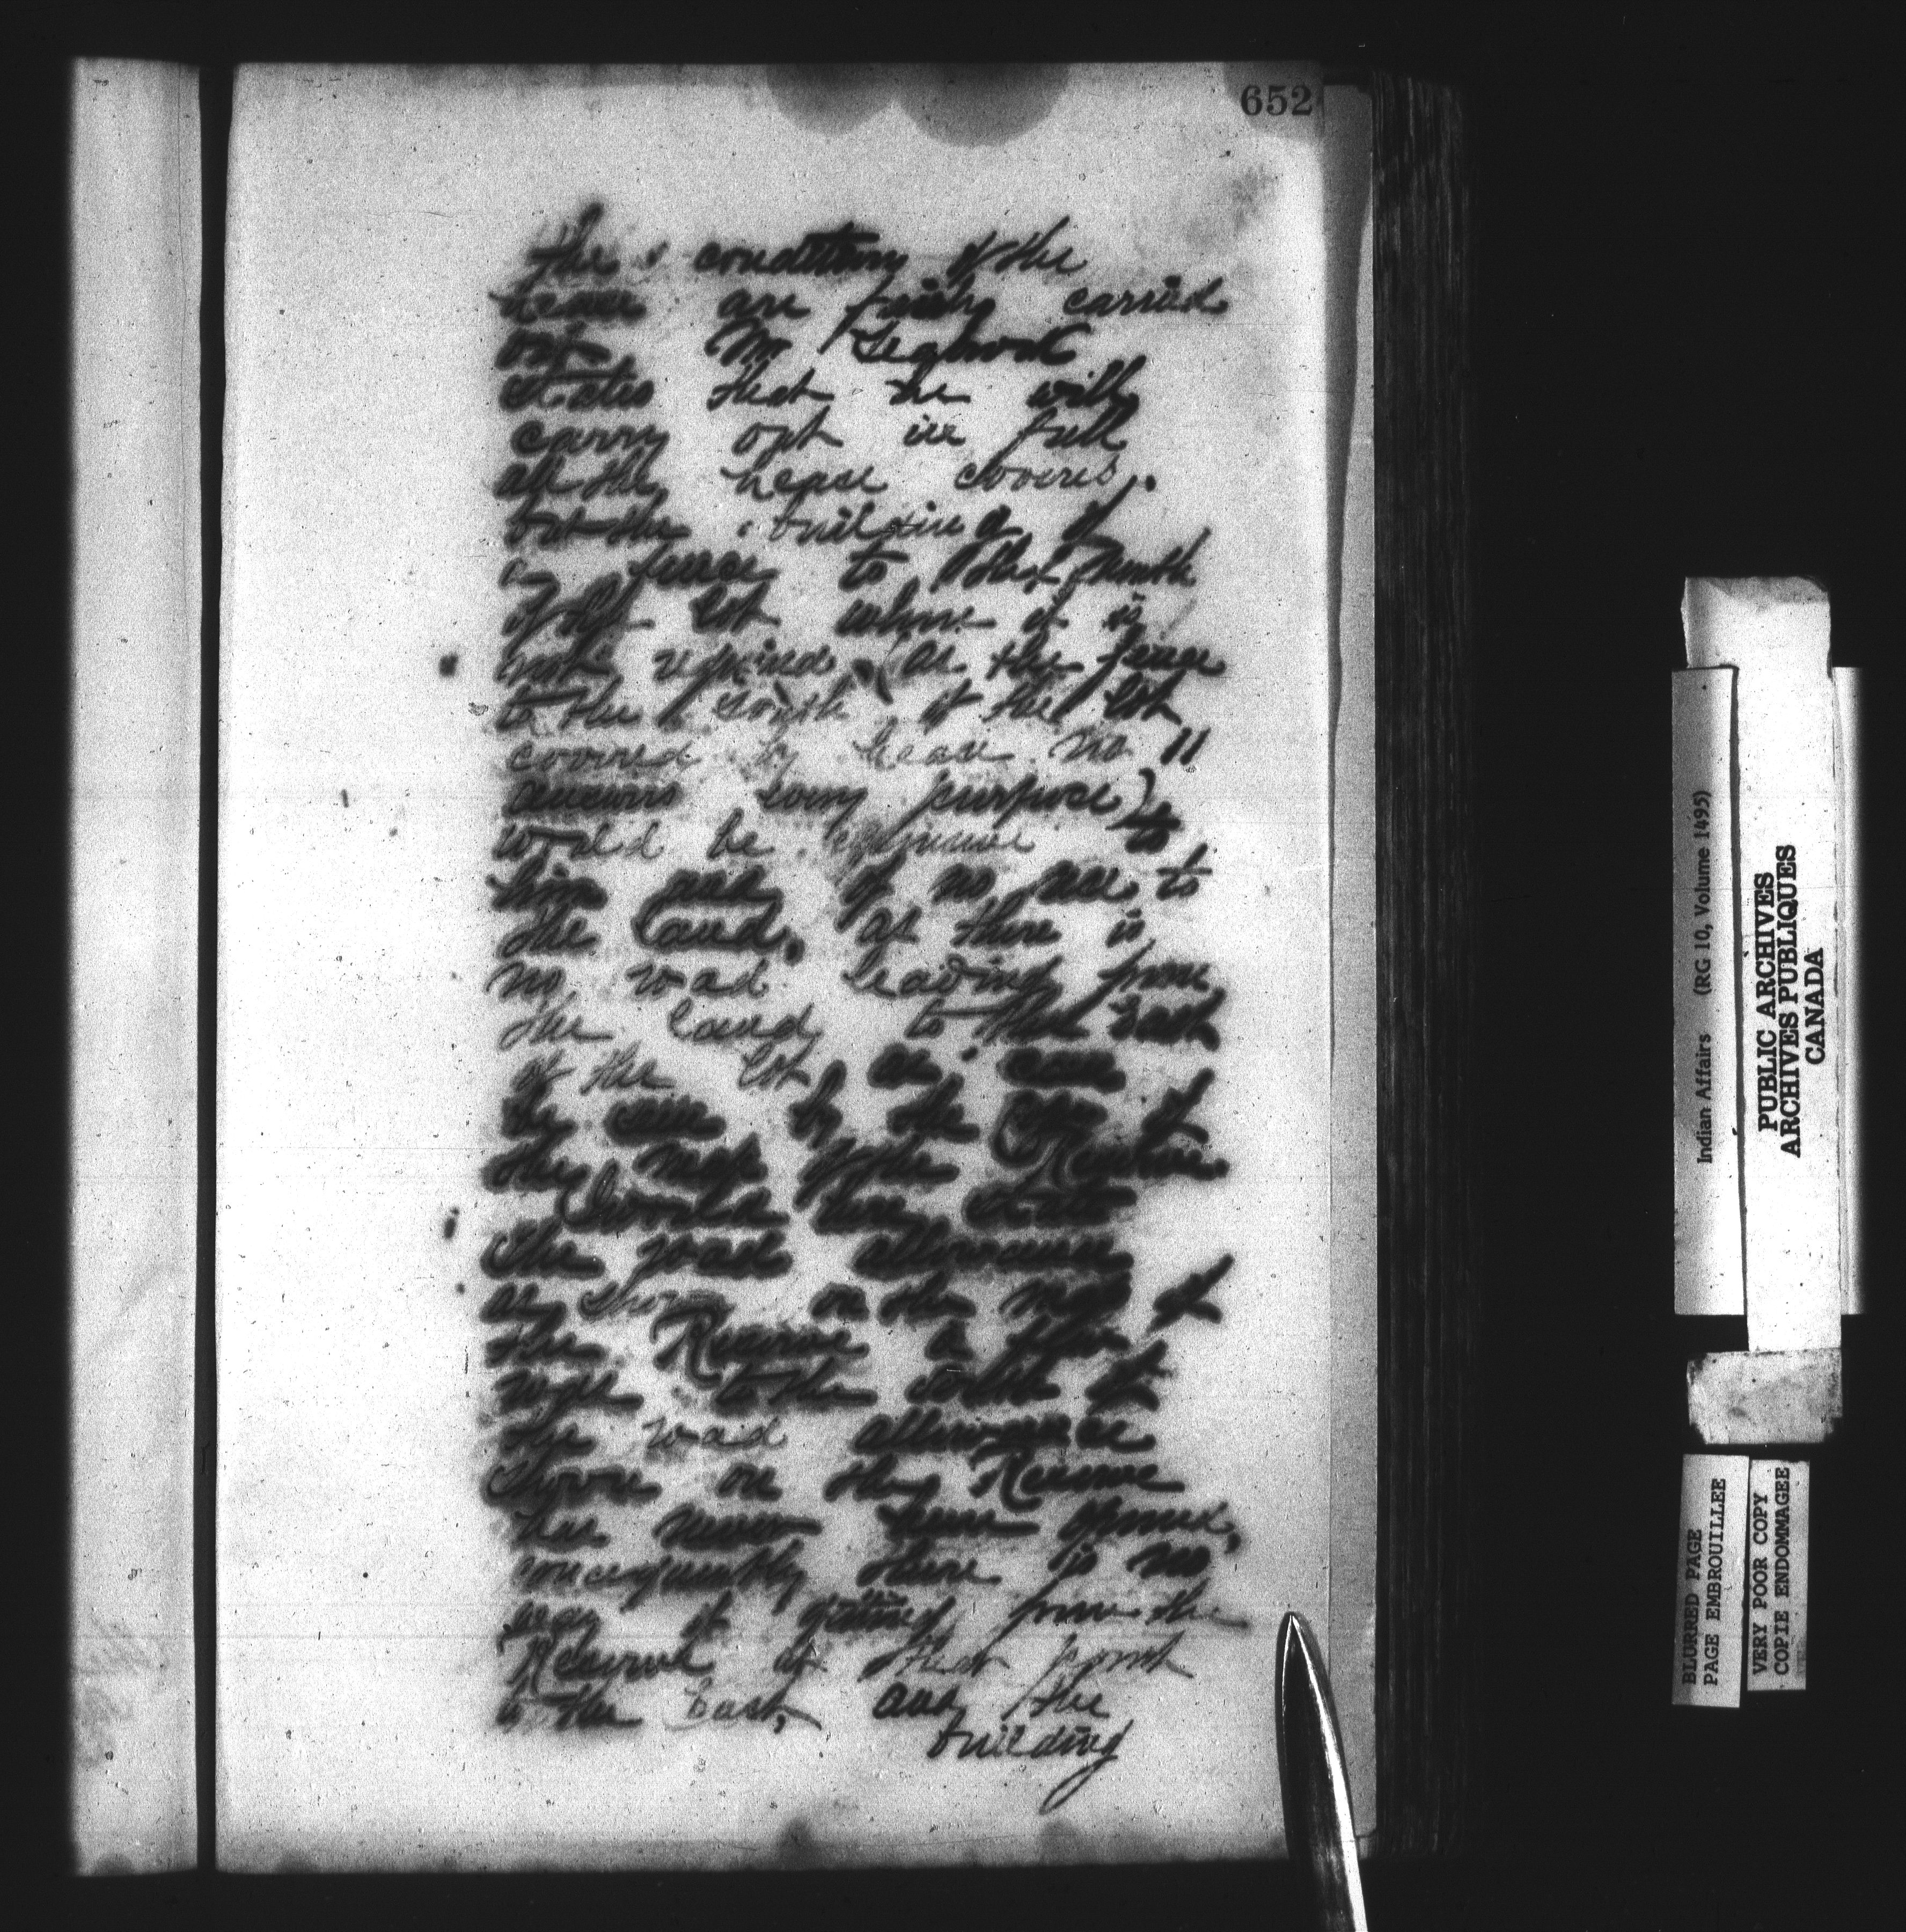 652
the conditions of the
Lease are fully carried
out Mr
states that he will
carry out in full
all the Lease covers.
but the building of
a fence to the North
of the lot where it is
not required (as the fence
to the South of the lot
covered by Lease No 11
answers every purpose)
would be expensive to
him and of no use to
the land, as there is
no road leading from
the land to the East
of the lot as can
be seen by the of
the map of the Reserve
I would here state
the road allowance
as shown on the map of
the Reserve
to the South of
the road allowance
shown on the Reserve
has never been opened,
consequently there is no
way of getting from the
Reserve at that point
to the East, and the
building
Indian Affairs (RG 10, Volume 1495)
PUBLIC ARCHIVES
ARCHIVES PUBLIQUES
CANADA
BLURRED PAGE
PAGE EMBROUILLEE
VERY POOR COPY
COPIE ENDOMMAGEE